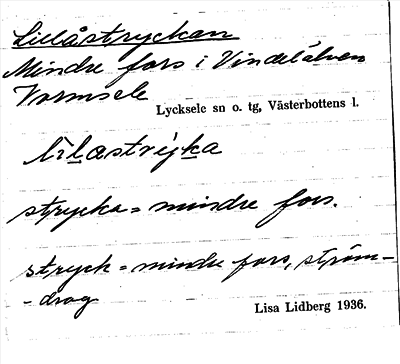 Lillåstryckan
Mindre fors i Vindelälven
Vormsele
Lycksele sn o. tg, Västerbottens l.
strycka = mindre fors.
stryck = mindre fors, ström-
-drag
Lisa Lidberg 1936.